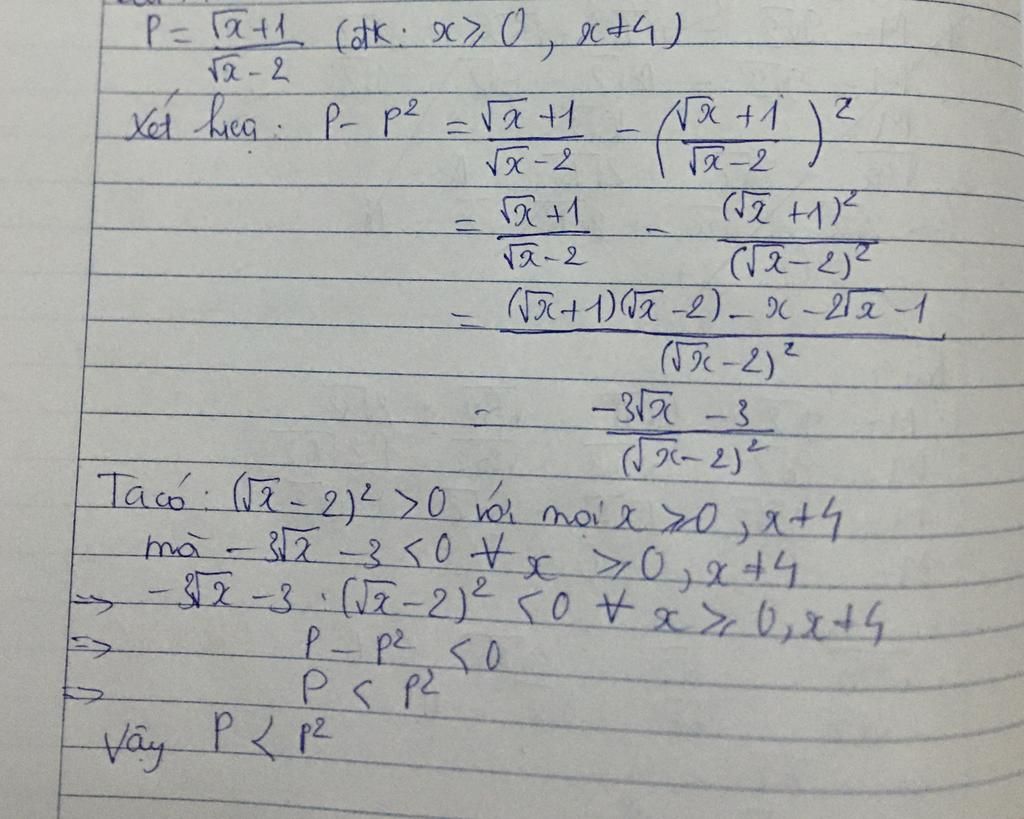 P = (√x+1)/(√x-2) (đk: x ≥ 0, x ≠ 4)
Xét hiệu: P - P² = (√x+1)/(√x-2) - ((√x+1)/(√x-2))²
= (√x+1)/(√x-2) - (√x+1)²/(√x-2)²
= ((√x+1)(√x-2) - x - 2√x - 1)/(√x-2)²
= (-3√x - 3)/(√x-2)²
Ta có: (√x-2)² > 0 với mọi x ≥ 0, x ≠ 4
mà -3√x - 3 < 0 ∀ x ≥ 0, x ≠ 4
=> -3√x - 3 · (√x-2)² < 0 ∀ x ≥ 0, x ≠ 4
=> P - P² < 0
=> P < P²
Vậy P < P²